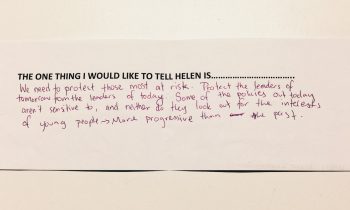 THE ONE THING I WOULD LIKE TO TELL HELEN IS.......................................
We need to protect those most at risk. Protect the leaders of
tomorrow from the leaders of today. Some of the policies out today
aren't sensitive to, and neither do they look out for the interests
of young people → More progressive than the past.